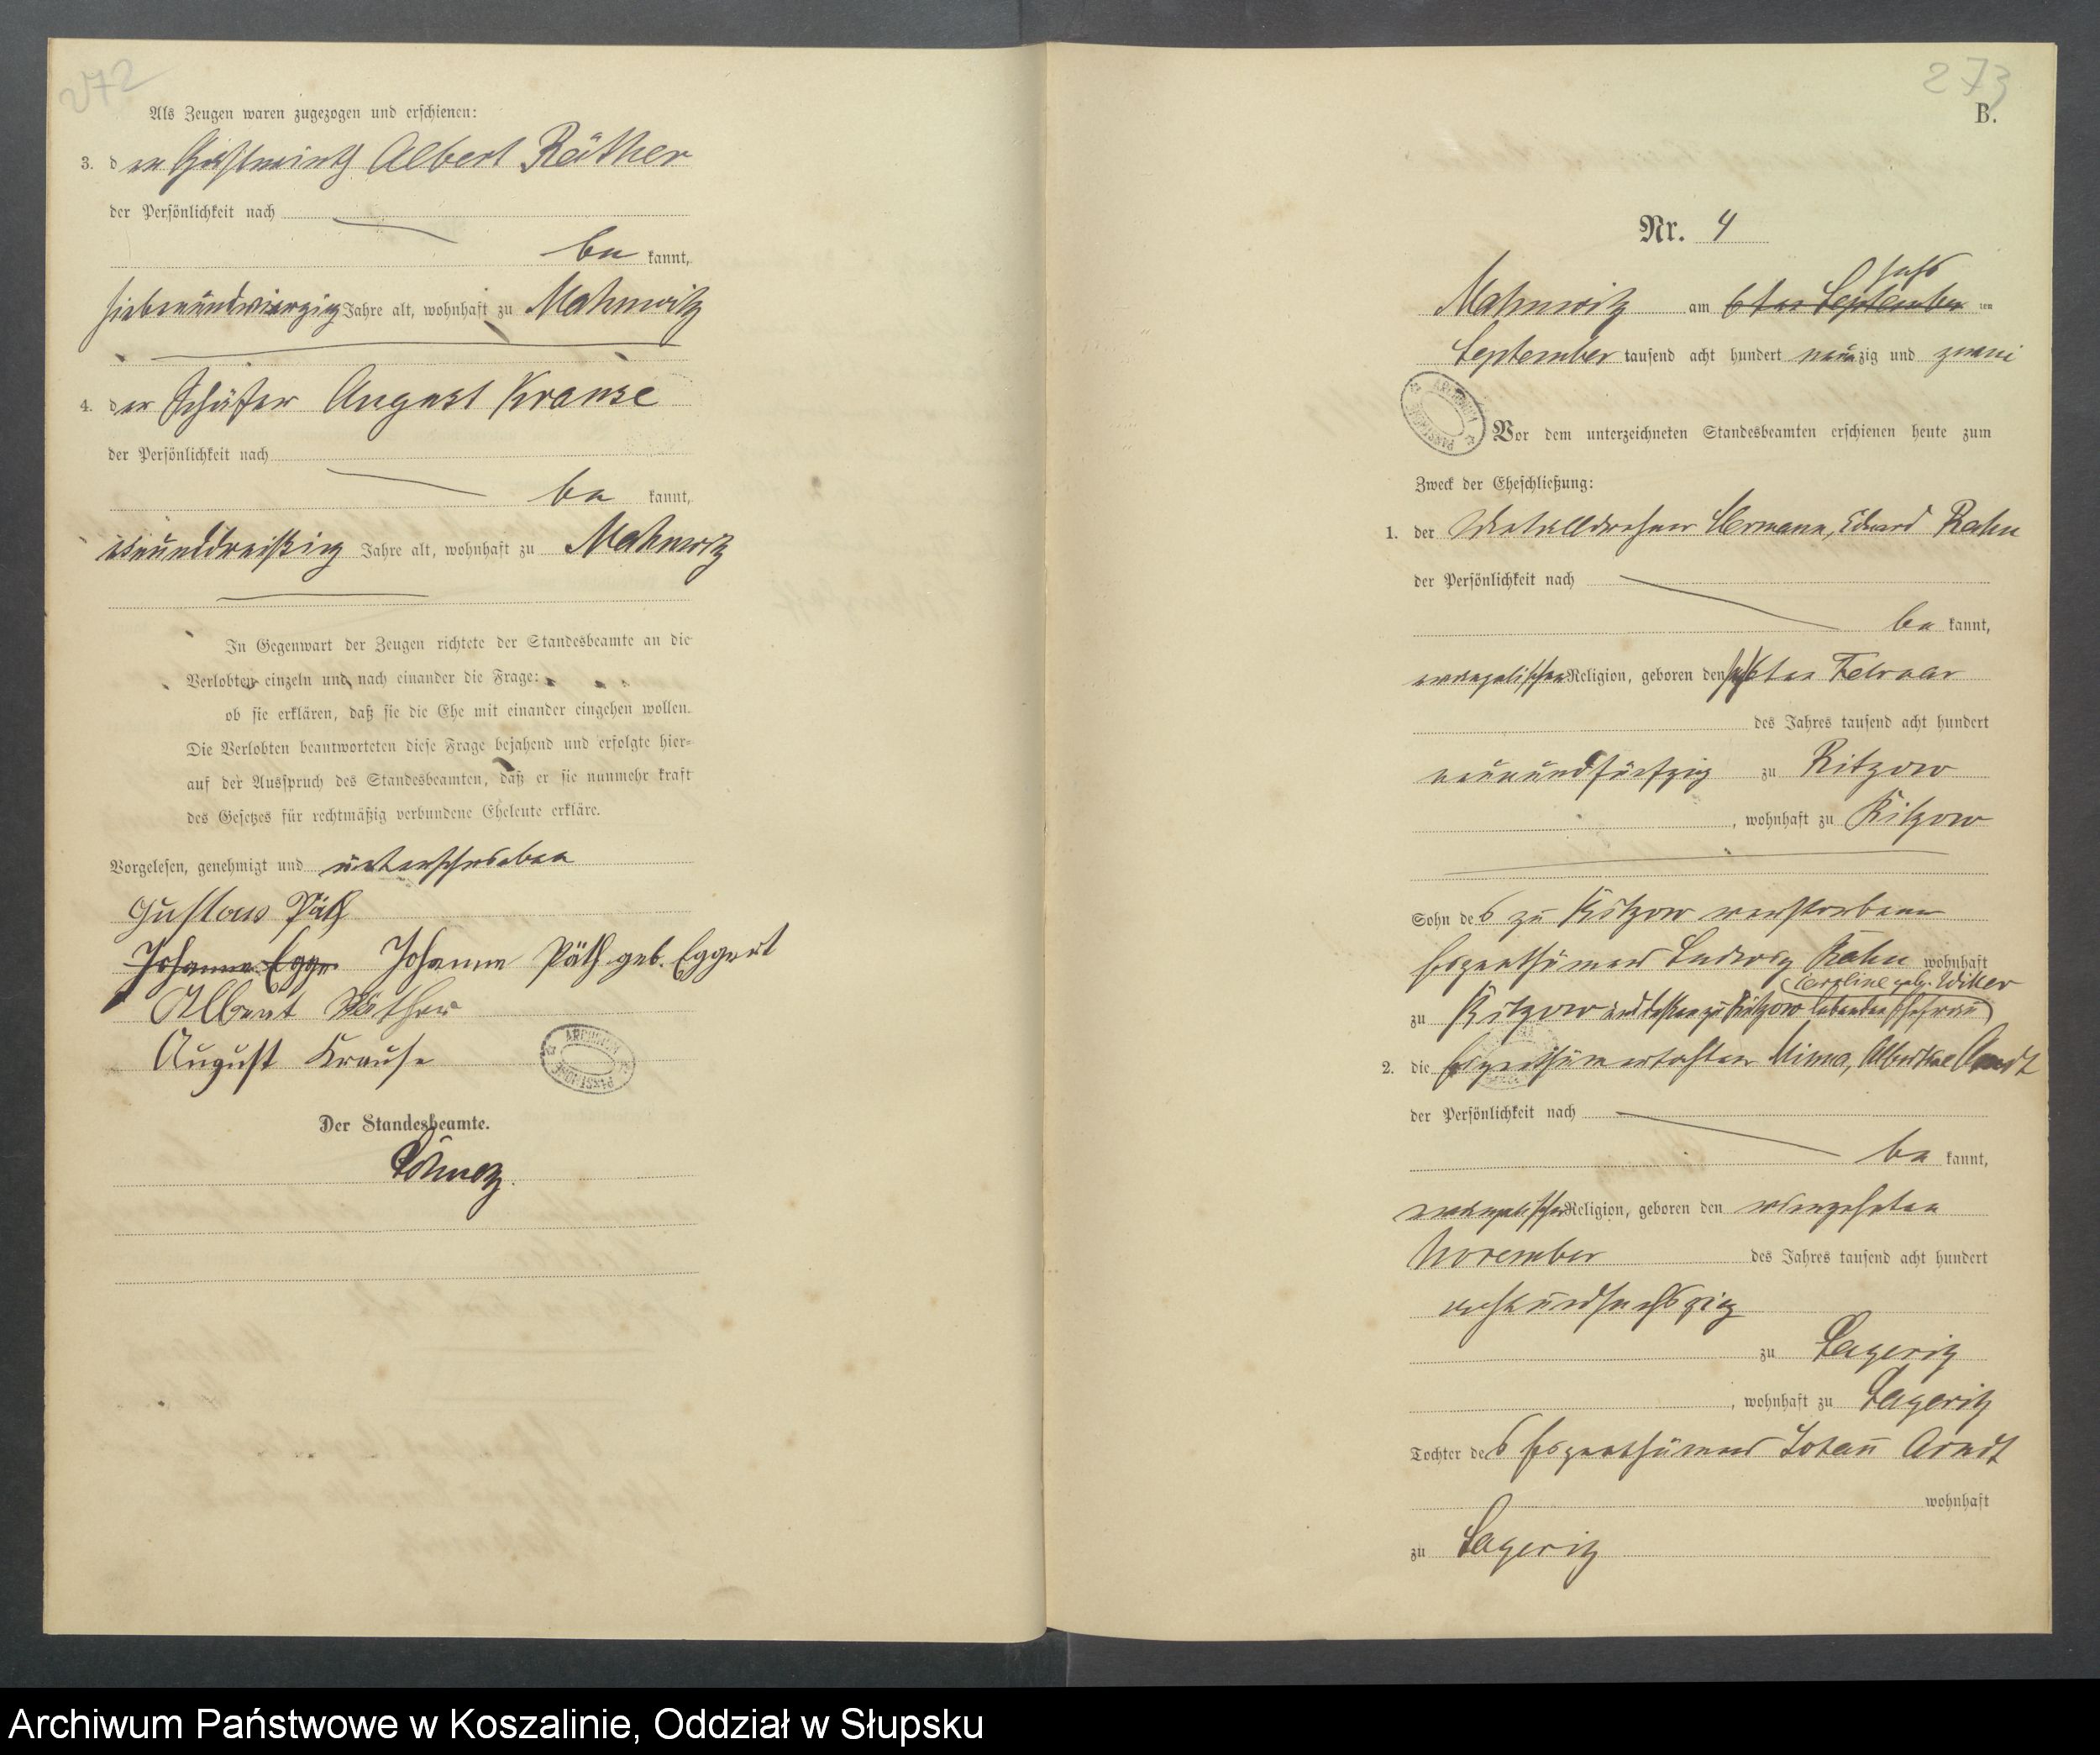 272
Als Zeugen waren zugezogen und erschienen:
3. der Gastwirth Albert Räther
der Persönlichkeit nach
be kannt,
siebenundvierzig Jahre alt, wohnhaft zu Mahnwitz
4. der Schäfer August Krause
der Persönlichkeit nach
be kannt,
neununddreißig Jahre alt, wohnhaft zu Mahnwitz
In Gegenwart der Zeugen richtete der Standesbeamte an die
Verlobten einzeln und nach einander die Frage:
ob sie erklären, daß sie die Ehe mit einander eingehen wollen.
Die Verlobten beantworteten diese Frage bejahend und erfolgte hier-
auf der Ausspruch des Standesbeamten, daß er sie nunmehr kraft
des Gesetzes für rechtmäßig verbundene Eheleute erkläre.
Vorgelesen, genehmigt und unterschrieben
Gustav Päth
Johanne Egge Johanne Päth geb. Eggert
Albert Räther
August Krause
Der Standesbeamte.
273
B.
Nr. 4
sechs
Mahnwitz am 6ten September ten
September tausend acht hundert neunzig und zwei
Vor dem unterzeichneten Standesbeamten erschienen heute zum
Zweck der Eheschließung:
1. der Hermann, Eduard Rahn
der Persönlichkeit nach
be kannt,
evangelischer Religion, geboren den Februar
des Jahres tausend acht hundert
neunundfünfzig zu Ritzow
, wohnhaft zu Ritzow
Sohn des zu Ritzow verstorbenen
Eigenthümers Ludwig Rahn wohnhaft
Caroline geb. Witter
zu Ritzow und dessen zu Ritzow lebenden Ehefrau
2. die Eigenthümertochter Minna, Albertine Arndt
der Persönlichkeit nach
be kannt,
evangelischer Religion, geboren den vierzehnten
November des Jahres tausend acht hundert
achtundsechszig
zu Lageritz
, wohnhaft zu Lageritz
Tochter des Eigenthümers Johann Arndt
wohnhaft
zu Lageritz
Archiwum Państwowe w Koszalinie, Oddział w Słupsku